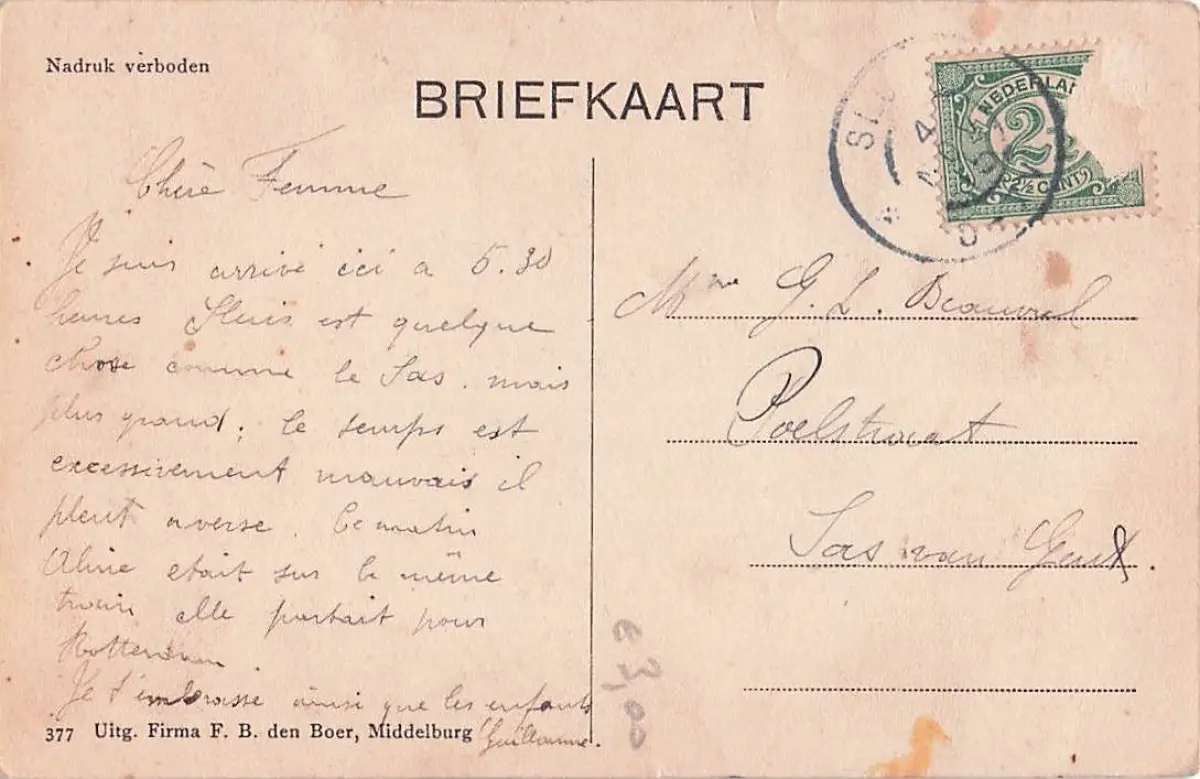 Nadruk verboden
BRIEFKAART
NEDERLA
2½
2½ CENT
Chère Femme
Je suis arrivé ici a 5.30
heures Sluis est quelque
chose comme le Sas. mais
plus grand; le temps est
excessivement mauvais il
pleut averse. Ce matin
Aline etait sur le même
train elle partait pour
Rotterdam.
Je t'embrasse ainsi que les enfants
Guillaume.
Mme G. L. Beauvel
Poelstraat
Sas van Gent.
€ 3,00
377 Uitg. Firma F. B. den Boer, Middelburg